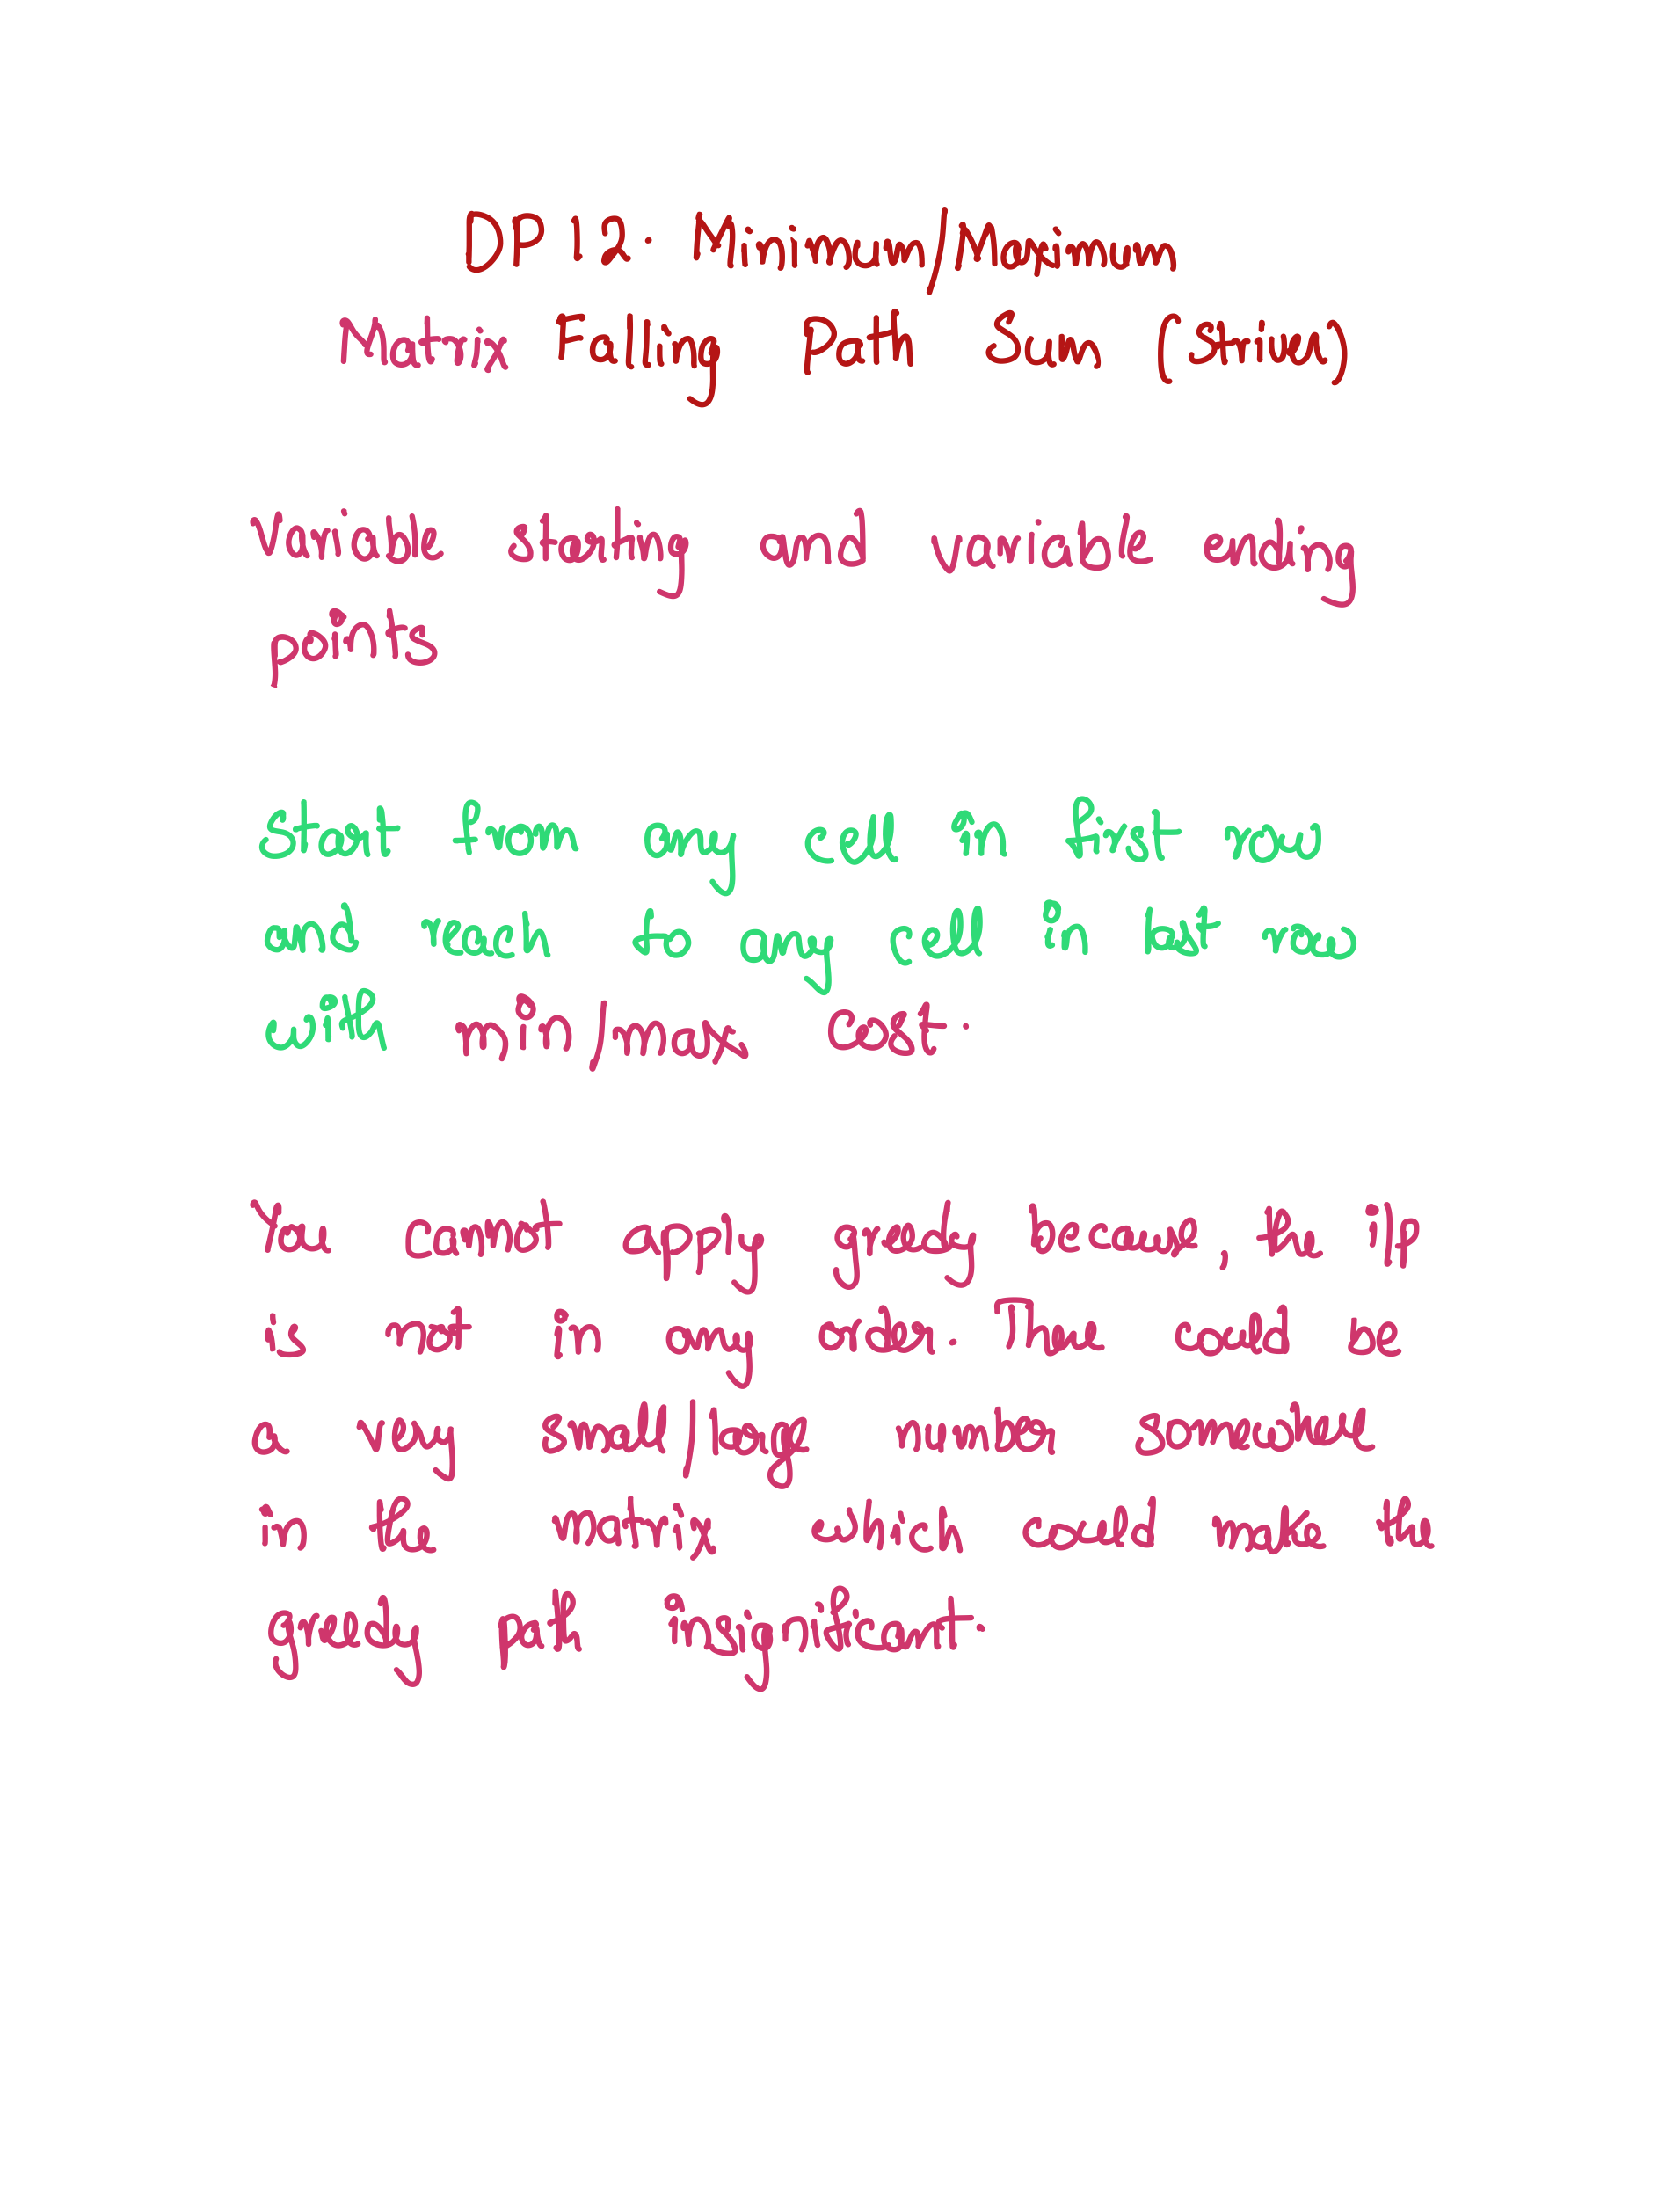 DP 12. Minimum/Maximum
Matrix Falling Path Sum (Striver)
Variable starting and variable ending
points
Start from any cell in first row
and reach to any cell in last row
with min/max cost.
You cannot apply greedy because, the i/p
is not in any order. There could be
a very small/large number somewhere
in the matrix which could make the
greedy path insignificant.